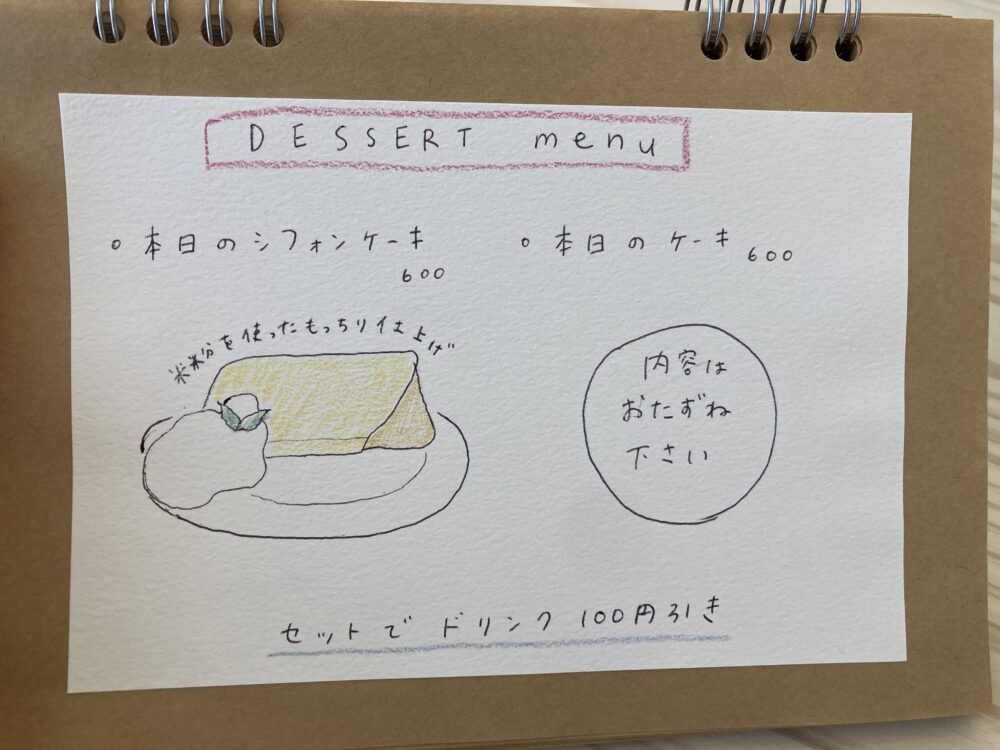 DESSERT menu
○ 本日のシフォンケーキ
600
米粉を使ったもっちり仕上げ
○ 本日のケーキ 600
内容は
おたずね
下さい
セットでドリンク100円引き